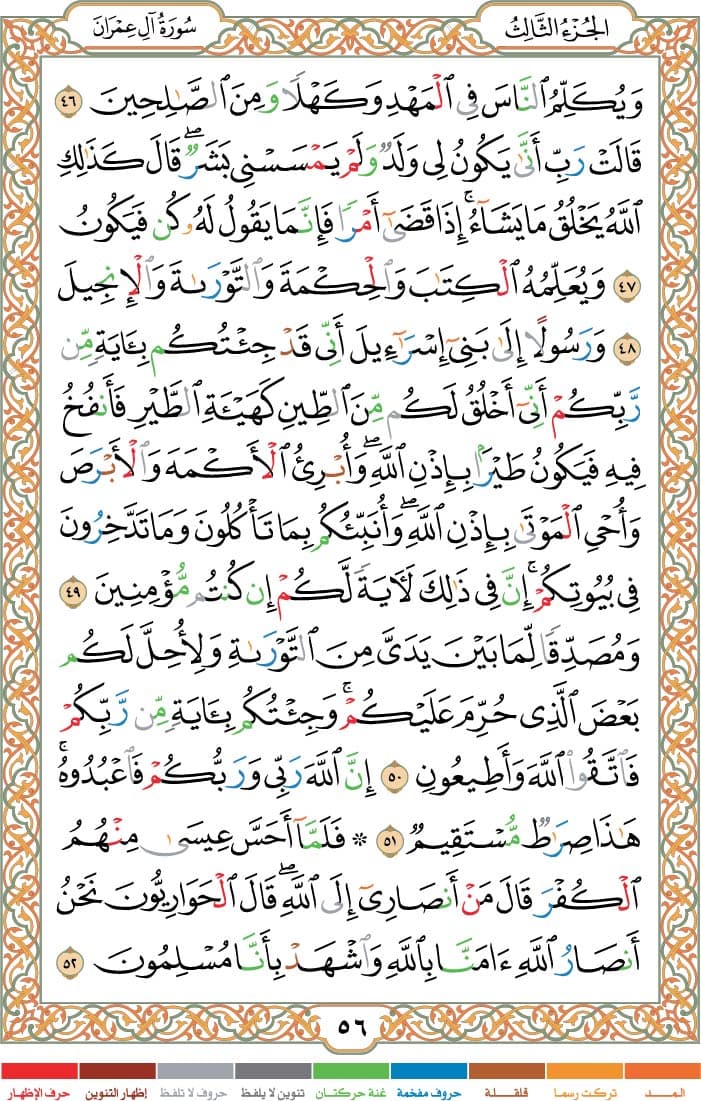 الجُزءُ الثَّالِثُ
سُورَةُ آلِ عِمْرَانَ
وَيُكَلِّمُ ٱلنَّاسَ فِي ٱلْمَهْدِ وَكَهْلًا وَمِنَ ٱلصَّٰلِحِينَ ٤٦
قَالَتْ رَبِّ أَنَّىٰ يَكُونُ لِي وَلَدٌ وَلَمْ يَمْسَسْنِي بَشَرٌ ۖ قَالَ كَذَٰلِكِ
ٱللَّهُ يَخْلُقُ مَا يَشَآءُ ۚ إِذَا قَضَىٰٓ أَمْرًا فَإِنَّمَا يَقُولُ لَهُۥ كُن فَيَكُونُ
٤٧ وَيُعَلِّمُهُ ٱلْكِتَٰبَ وَٱلْحِكْمَةَ وَٱلتَّوْرَىٰةَ وَٱلْإِنجِيلَ
٤٨ وَرَسُولًا إِلَىٰ بَنِيٓ إِسْرَٰٓءِيلَ أَنِّي قَدْ جِئْتُكُم بِـَٔايَةٍ مِّن
رَّبِّكُمْ أَنِّيٓ أَخْلُقُ لَكُم مِّنَ ٱلطِّينِ كَهَيْـَٔةِ ٱلطَّيْرِ فَأَنفُخُ
فِيهِ فَيَكُونُ طَيْرًۢا بِإِذْنِ ٱللَّهِ ۖ وَأُبْرِئُ ٱلْأَكْمَهَ وَٱلْأَبْرَصَ
وَأُحْيِ ٱلْمَوْتَىٰ بِإِذْنِ ٱللَّهِ ۖ وَأُنَبِّئُكُم بِمَا تَأْكُلُونَ وَمَا تَدَّخِرُونَ
فِي بُيُوتِكُمْ ۚ إِنَّ فِي ذَٰلِكَ لَـَٔايَةً لَّكُمْ إِن كُنتُم مُّؤْمِنِينَ ٤٩
وَمُصَدِّقًا لِّمَا بَيْنَ يَدَيَّ مِنَ ٱلتَّوْرَىٰةِ وَلِأُحِلَّ لَكُم
بَعْضَ ٱلَّذِي حُرِّمَ عَلَيْكُمْ ۚ وَجِئْتُكُم بِـَٔايَةٍ مِّن رَّبِّكُمْ
فَٱتَّقُوا۟ ٱللَّهَ وَأَطِيعُونِ ٥٠ إِنَّ ٱللَّهَ رَبِّي وَرَبُّكُمْ فَٱعْبُدُوهُ ۚ
هَٰذَا صِرَٰطٌ مُّسْتَقِيمٌ ٥١ ۞ فَلَمَّآ أَحَسَّ عِيسَىٰ مِنْهُمُ
ٱلْكُفْرَ قَالَ مَنْ أَنصَارِيٓ إِلَى ٱللَّهِ ۖ قَالَ ٱلْحَوَارِيُّونَ نَحْنُ
أَنصَارُ ٱللَّهِ ءَامَنَّا بِٱللَّهِ وَٱشْهَدْ بِأَنَّا مُسْلِمُونَ ٥٢
٥٦
المــــد تركت رسما قلقـــلة حروف مفخمة غنة حركتان تنوين لا يلفظ حروف لا تلفظ إظهار التنوين حرف الإظهار